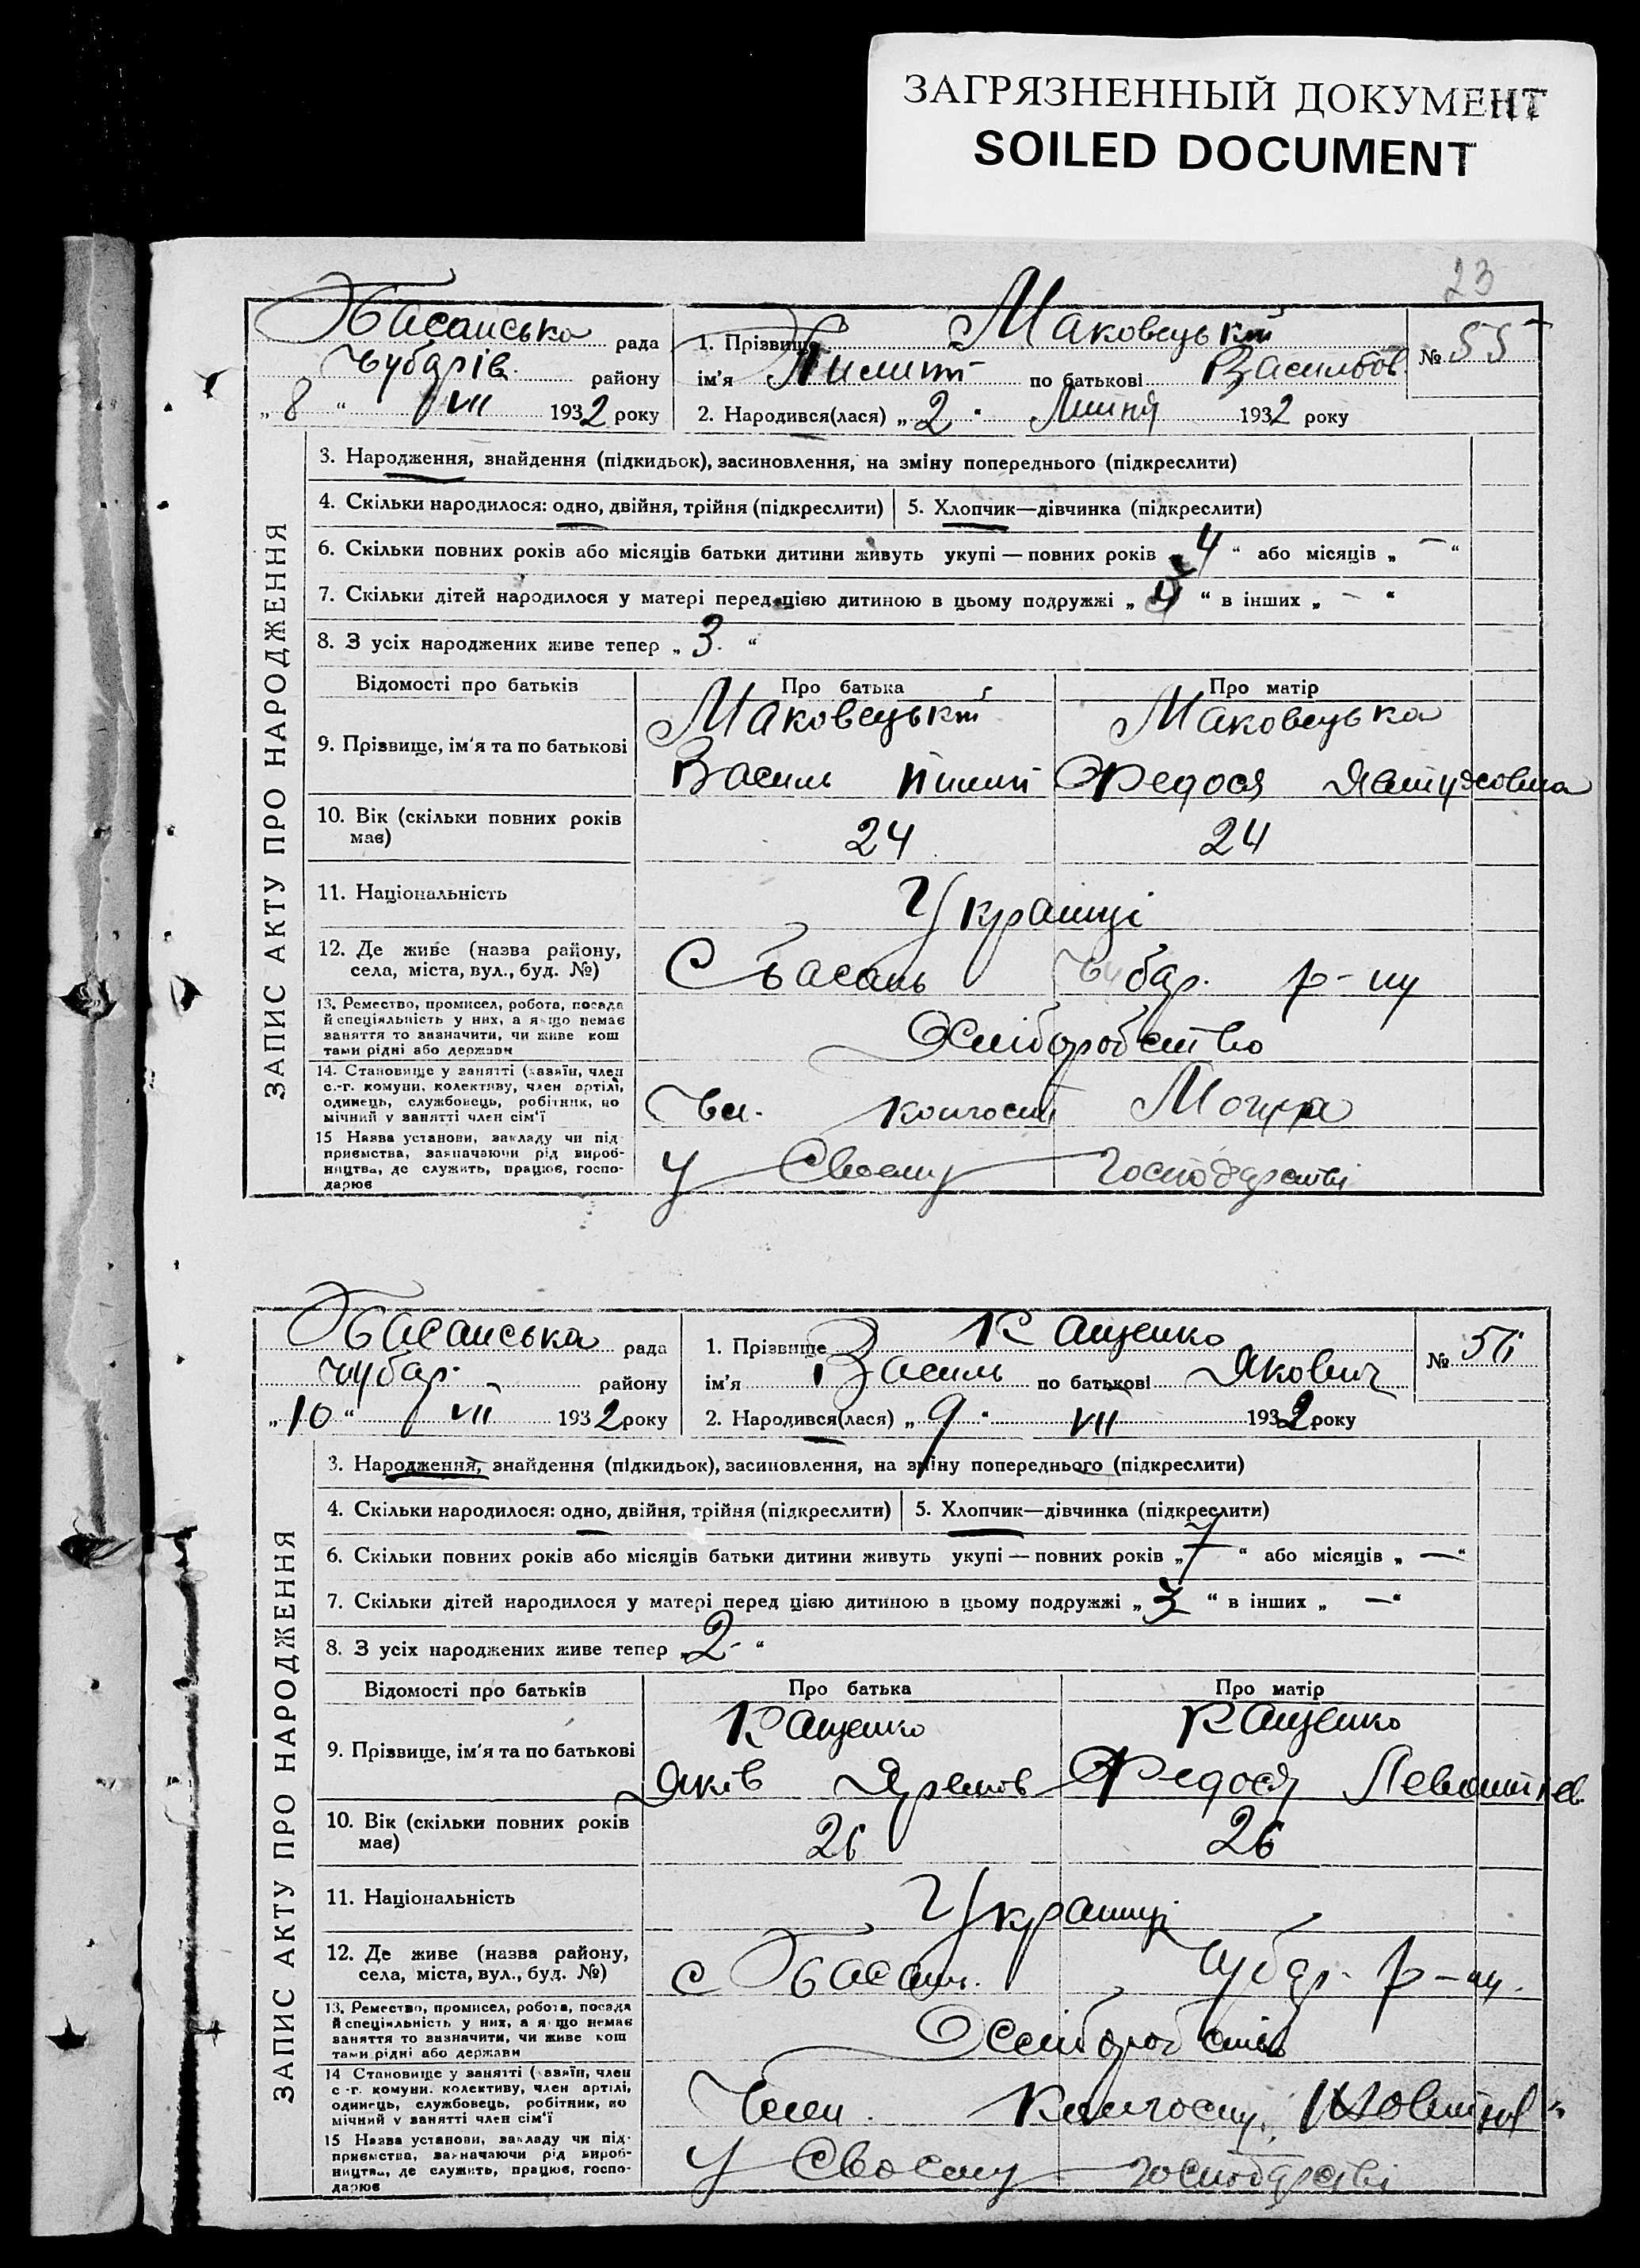 ЗАГРЯЗНЕННЫЙ ДОКУМЕНТ
SOILED DOCUMENT
23
ЗАПИС АКТУ ПРО НАРОДЖЕННЯ
Басанська рада
Чубарів. району
„8“ VII 1932 року
1. Прізвище Маковецький
ім'я Пилип по батькові Васильов.
№ 55
2. Народився(лася) „2“ Липня 1932 року
3. Народження, знайдення (підкидьок), засиновлення, на зміну попереднього (підкреслити)
4. Скільки народилося: одно, двійня, трійня (підкреслити) 5. Хлопчик—дівчинка (підкреслити)
6. Скільки повних років або місяців батьки дитини живуть укупі — повних років „4“ або місяців „—“
7. Скільки дітей народилося у матері перед цією дитиною в цьому подружжі „ “ в інших „—“
8. З усіх народжених живе тепер „3.“
Відомості про батьків Про батька Про матір
9. Прізвище, ім'я та по батькові
Маковецький Маковецька
Василь Пилип Федося
10. Вік (скільки повних років має) 24 24
11. Національність Українці
12. Де живе (назва району, села, міста, вул., буд. №) С Басань Чубар. р-ну
13. Ремество, промисел, робота, посада
й спеціяльність у них, а якщо немає
заняття то визначити, чи живе кош
тами рідні або держави
14. Становище у занятті (хазяїн, член
с.-г. комуни, колективу, член артілі,
одинець, службовець, робітник, по
мічний у занятті член сім'ї
Чл. колгоспу
15 Назва установи, закладу чи під-
приємства, зазначаючи рід вироб-
ництва, де служить, працює, госпо-
дарює
У своєму господарстві
ЗАПИС АКТУ ПРО НАРОДЖЕННЯ
Басанська рада
Чубар. району
„10“ VII 1932 року
1. Прізвище Кащенко
ім'я Василь по батькові Якович
№ 56
2. Народився(лася) „9“ VII 1932 року
3. Народження, знайдення (підкидьок), засиновлення, на зміну попереднього (підкреслити)
4. Скільки народилося: одно, двійня, трійня (підкреслити) 5. Хлопчик—дівчинка (підкреслити)
6. Скільки повних років або місяців батьки дитини живуть укупі — повних років „7“ або місяців „—“
7. Скільки дітей народилося у матері перед цією дитиною в цьому подружжі „3“ в інших „—“
8. З усіх народжених живе тепер „2-“
Відомості про батьків Про батька Про матір
9. Прізвище, ім'я та по батькові
Кащенко Кащенко
Яків Федося
10. Вік (скільки повних років має) 26 26
11. Національність Українці
12. Де живе (назва району, села, міста, вул., буд. №) с Басань. Чубар. р-ну.
13. Ремество, промисел, робота, посада
й спеціяльність у них, а якщо немає
заняття то визначити, чи живе кош
тами рідні або держави
14 Становище у занятті (хазяїн, член
с.-г. комуни, колективу, член артілі,
одинець, службовець, робітник, по
мічний у занятті член сім'ї
Член. колгоспу
15 Назва установи, закладу чи під-
приємства, зазначаючи рід вироб-
ництва, де служить, працює, госпо-
дарює
У своєму господарстві